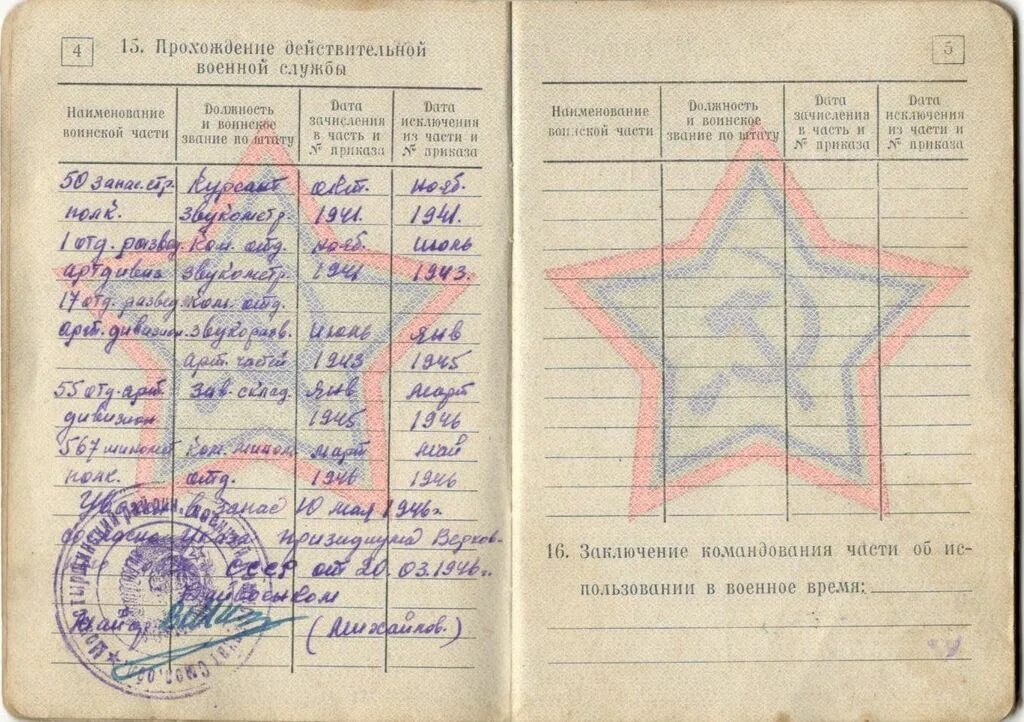 4
15. Прохождение действительной
военной службы
Наименование воинской части
Должность и воинское звание по штату
Дата зачисления в часть и № приказа
Дата исключения из части и № приказа
50 запас. стр. Курсант окт. нояб.
полк. звукометр. 1941. 1941.
1 отд. развед. Ком. отд. нояб. июль
артдивиз звукометр. 1941 1943.
17 отд. развед Ком. отд.
арт. дивизион. звукоразв. июль янв
арт. частей 1943 1945
55 отд. арт. Зав. склад. янв март
дивизион 1945 1946
567 миномет Ком. мином. март май
полк. отд. 1946 1946
в запас 10 мая 1946г.
согласно Указа призидиума Верхов.
СССР от 20.03.1946г.
Райвоенком
Майор (Михайлов.)
5
Наименование воинской части
Должность и воинское звание по штату
Дата зачисления в часть и № приказа
Дата исключения из части и № приказа
16. Заключение командования части об ис-
пользовании в военное время: